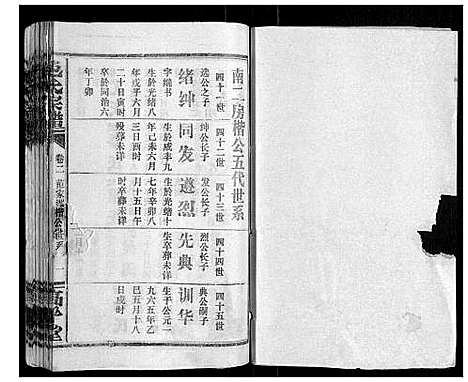 南二房楷公五代世系
四十一世
绪绅
选公之子
字缙书
生於光绪八
年戊子六月
二十日寅时
卒於同治六
年丁卯
四十二世
同发
绅公长子
生於咸丰九
年己未六月
三日酉时
殁葬未详
四十三世
遂烈
发公长子
生於光绪十
七年辛卯八
月十五日午
时卒葬未详
四十四世
先典
烈公长子
生卒葬未详
四十五世
训华
典公嗣子
生于公元一
九六五年乙
巳五月十八
日戌时
卷二
楷公世系
一
堂